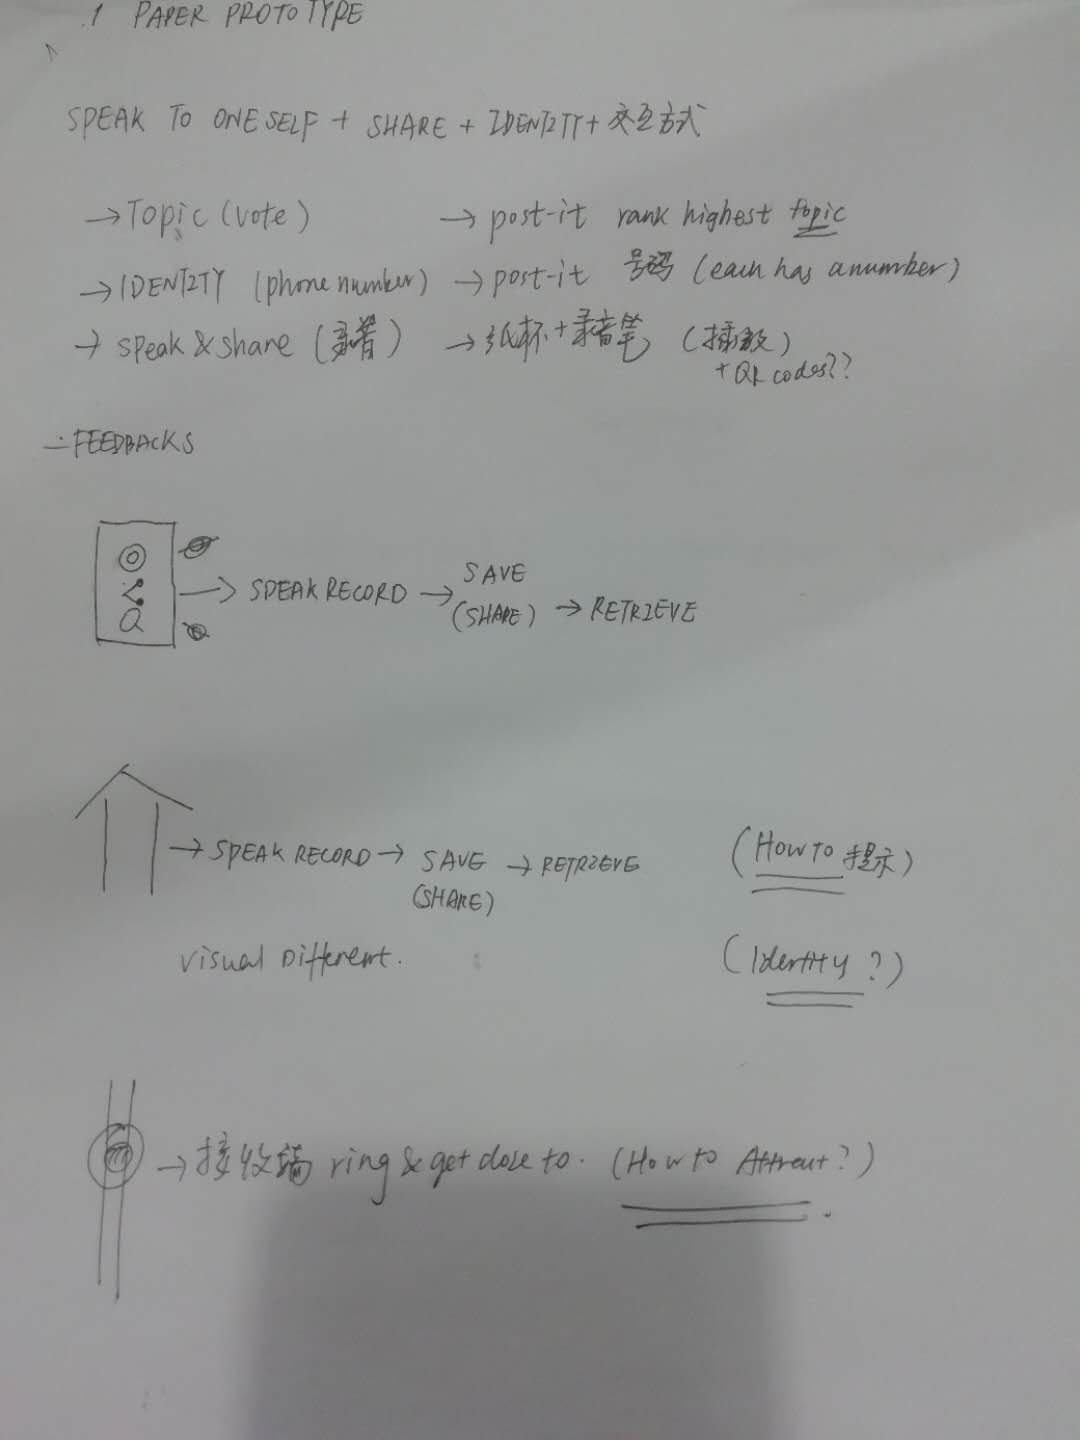 .1 PAPER PROTOTYPE
SPEAK TO ONESELF + SHARE + IDENTITY + 交互方式
→ Topic (vote) → post-it rank highest topic
→ IDENTITY (phone number) → post-it 号码 (each has a number)
→ speak & share (录音) → 纸杯 + 录音笔 (播放)
+ QR codes??
- FEEDBACKS
→ SPEAK RECORD → SAVE
(SHARE) → RETRIEVE
→ SPEAK RECORD → SAVE → RETRIEVE (How to 提示)
(SHARE)
visual Different. (Identity?)
→ 接收端 ring & get close to. (How to Attract?)